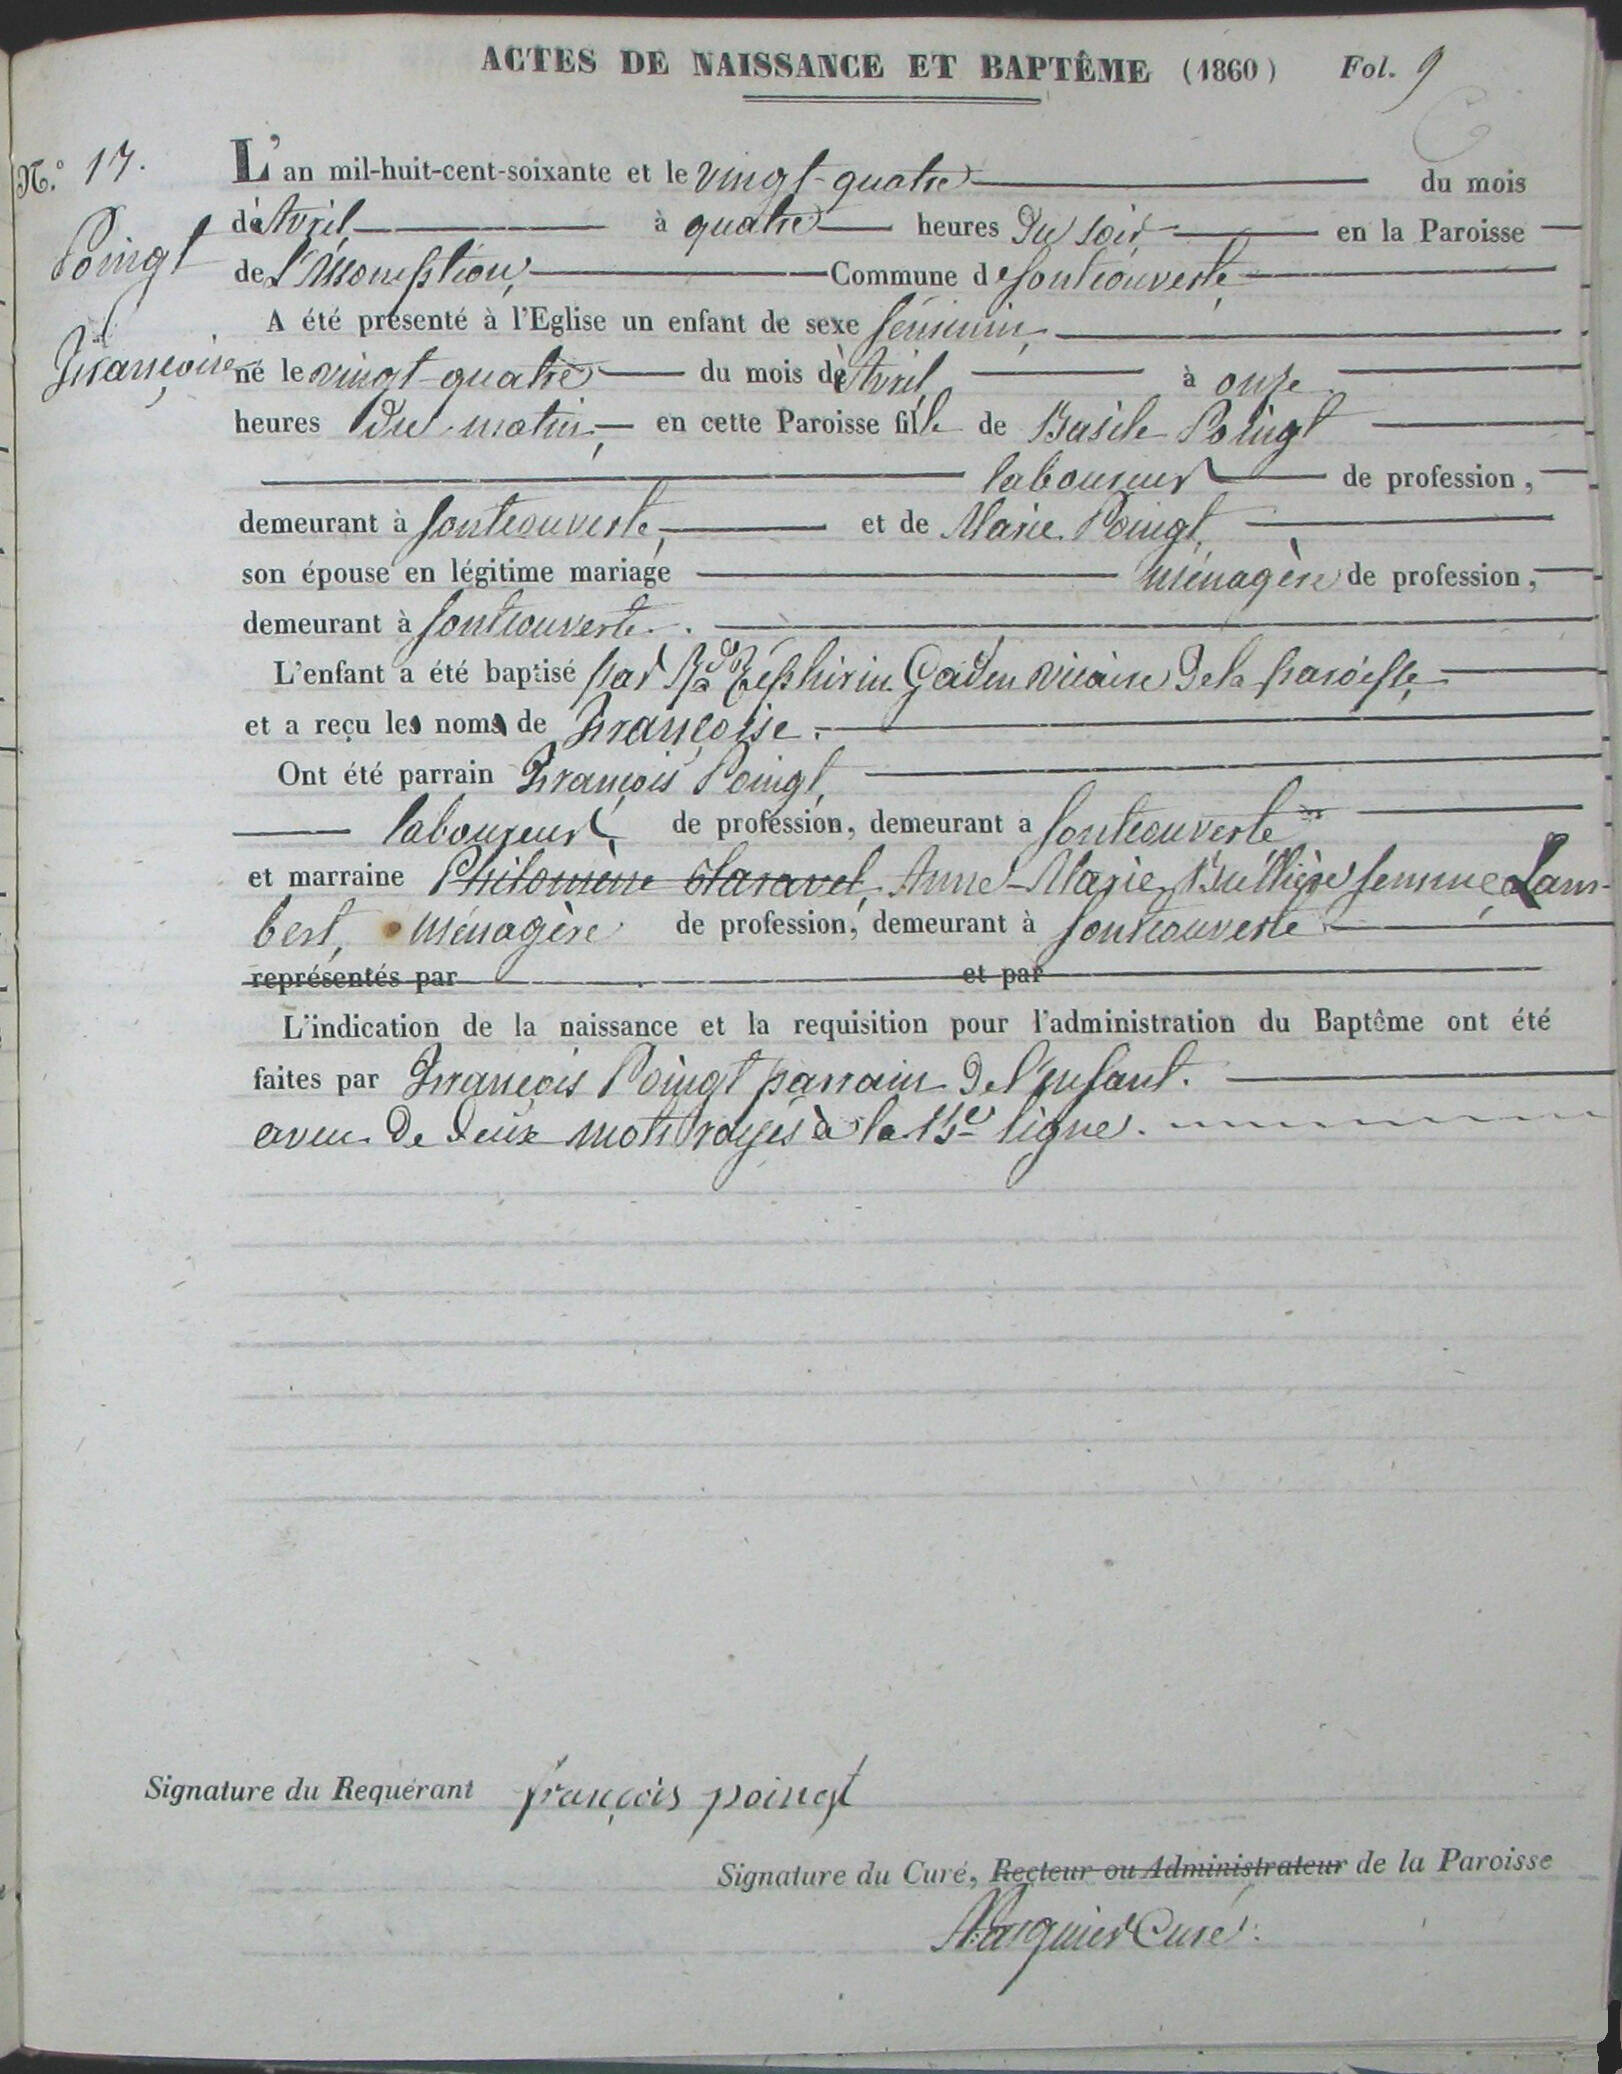 ACTES DE NAISSANCE ET BAPTÊME (1860) Fol. 9
N.° 17.
Poingt
Françoise
L'an mil-huit-cent-soixante et le vingt-quatre du mois
d'Avril à quatre heures du soir en la Paroisse
de l'Assomption, Commune de fontcouverte,
A été présenté à l'Eglise un enfant de sexe féminin,
né le vingt-quatre du mois d'Avril, à onze
heures du matin, en cette Paroisse fille de Basile Poingt
laboureur de profession,
demeurant à fontcouverte, et de Marie Poingt,
son épouse en légitime mariage ménagère de profession,
demeurant à fontcouverte.
L'enfant a été baptisé par Rd Zéphirin Gaden vicaire de la paroisse,
et a reçu les noms de Françoise.
Ont été parrain François Poingt,
laboureur, de profession, demeurant a fontcouverte
et marraine Philomène Claravet, Anne-Marie femme Lam-
bert, ménagère de profession, demeurant à fontcouverte
représentés par et par
L'indication de la naissance et la requisition pour l'administration du Baptême ont été
faites par François Poingt parrain de l'enfant.
aveu de deux mots rayés à la 15e ligne.
Signature du Requérant françois poingt
Signature du Curé, Recteur ou Administrateur de la Paroisse
Curé.